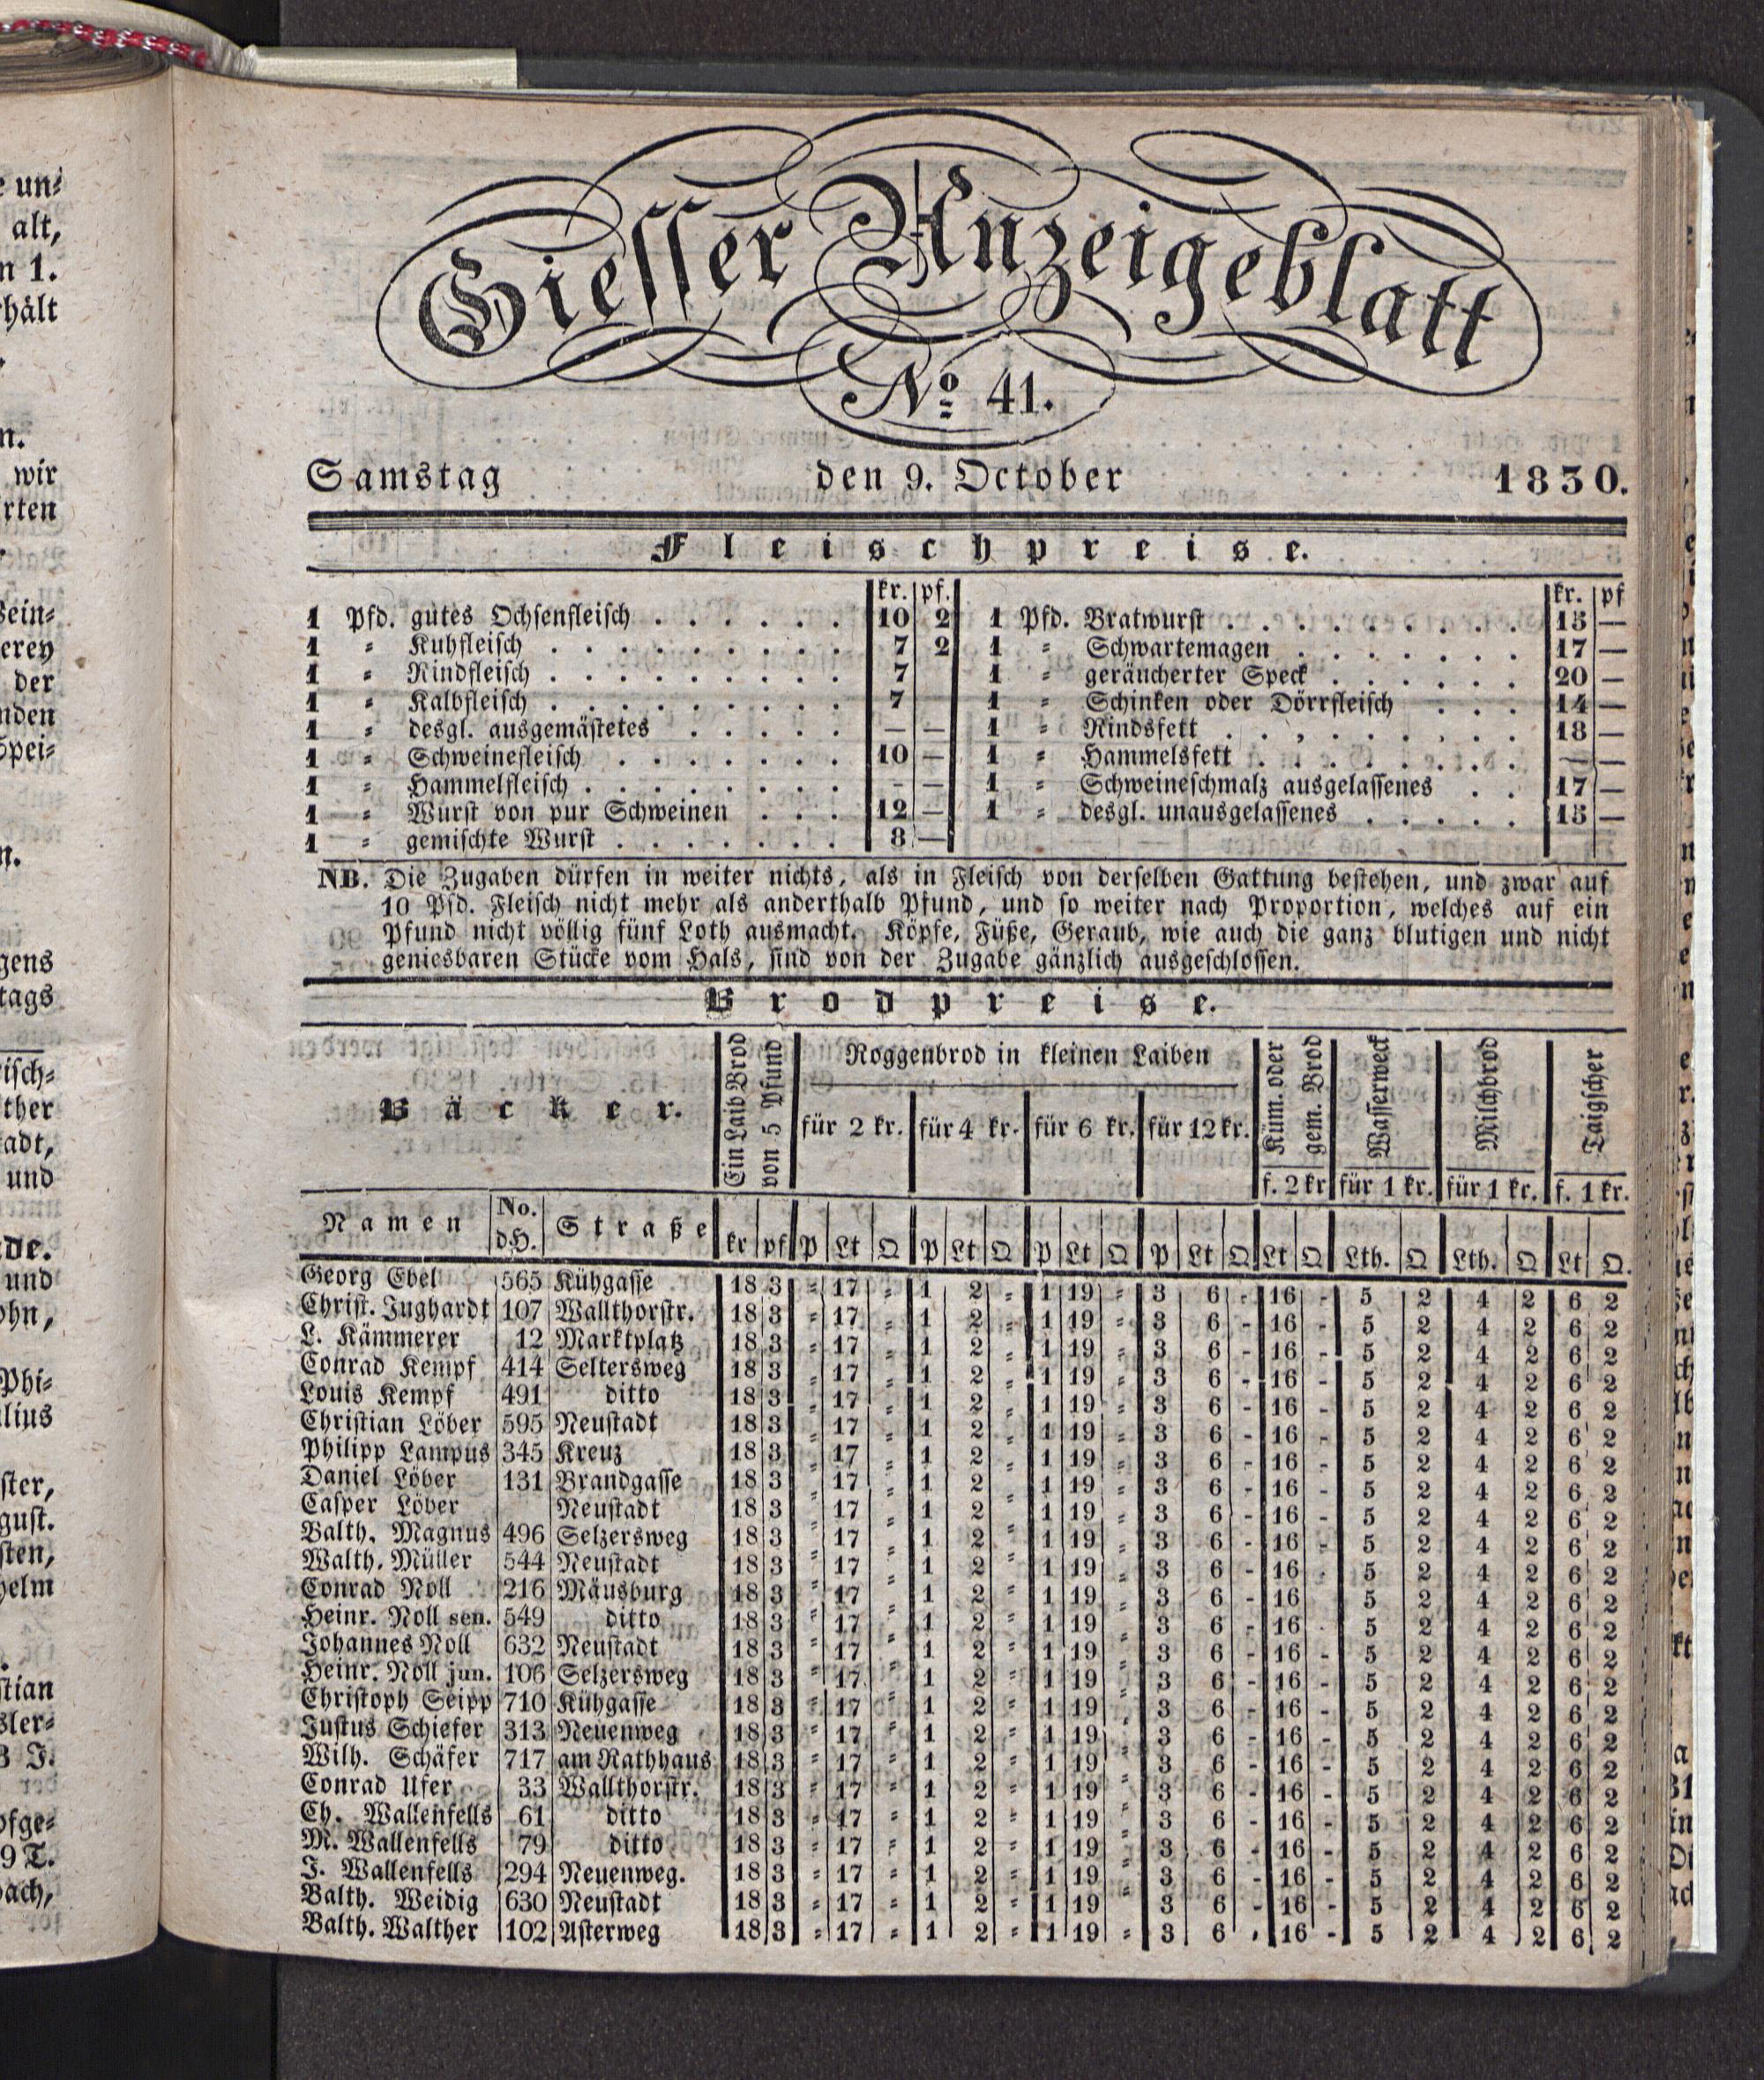 e un=
alt,
n 1.
hält
n.
wir
rten
Sein=
erey
der
nden
Spei=
n.
gens
tags
isch=
ther
adt,
und
de.
und
ohn,
Phi=
lius
ster,
gust.
sten,
helm
stian
sler=
3 J.
pfge=
9 T.
bach,
Giesser Anzeigeblatt
No 41.
Samstag den 9. October 1830.
Fleischpreise.
kr. pf. kr. pf
1 Pfd. gutes Ochsenfleisch . . . . . . 10 2 1 Pfd. Bratwurst . . . . . . . . . 15 —
1 = Kuhfleisch . . . . . . . . . 7 2 1 = Schwartemagen . . . . . . . 17 —
1 = Rindfleisch . . . . . . . . . 7 1 = geräucherter Speck . . . . . . 20 —
1 = Kalbfleisch . . . . . . . . . 7 1 = Schinken oder Dörrfleisch . . . 14 —
1 = desgl. ausgemästetes . . . . . — — 1 = Rindsfett . . . . . . . . . 18 —
1 = Schweinefleisch . . . . . . . 10 — 1 = Hammelsfett . . . . . . . . — —
1 = Hammelfleisch . . . . . . . . - — 1 = Schweineschmalz ausgelassenes . . 17 —
1 = Wurst von pur Schweinen . . . 12 — 1 = desgl. unausgelassenes . . . . . 15 —
1 = gemischte Wurst . . . . . . . 8 —
NB. Die Zugaben dürfen in weiter nichts, als in Fleisch von derselben Gattung bestehen, und zwar auf
10 Pfd. Fleisch nicht mehr als anderthalb Pfund, und so weiter nach Proportion, welches auf ein
Pfund nicht völlig fünf Loth ausmacht. Köpfe, Füße, Geraub, wie auch die ganz blutigen und nicht
geniesbaren Stücke vom Hals, sind von der Zugabe gänzlich ausgeschlossen.
Brodpreise.
Bäcker.
Ein Laib Brod
von 5 Pfund
Roggenbrod in kleinen Laiben
für 2 kr. für 4 kr. für 6 kr. für 12 kr.
Küm. oder
gem. Brod
f. 2 kr
Wasserweck
für 1 kr.
Milchbrod
für 1 kr.
Taigscher
f. 1 kr.
Namen No. d.H. Straße kr pf P Lt Q P Lt Q P Lt Q P Lt Q Lt Q Lth. Q Lth. Q Lt Q.
Georg Ebel 565 Kühgasse 18 3 = 17 = 1 2 = 1 19 = 3 6 - 16 - 5 2 4 2 6 2
Christ. Jughardt 107 Wallthorstr. 18 3 = 17 = 1 2 = 1 19 = 3 6 - 16 - 5 2 4 2 6 2
L. Kämmerer 12 Marktplatz 18 3 = 17 = 1 2 = 1 19 = 3 6 - 16 - 5 2 4 2 6 2
Conrad Kempf 414 Seltersweg 18 3 = 17 = 1 2 = 1 19 = 3 6 - 16 - 5 2 4 2 6 2
Louis Kempf 491 ditto 18 3 = 17 = 1 2 = 1 19 = 3 6 - 16 - 5 2 4 2 6 2
Christian Löber 595 Neustadt 18 3 = 17 = 1 2 = 1 19 = 3 6 - 16 - 5 2 4 2 6 2
Philipp Lampus 345 Kreuz 18 3 = 17 = 1 2 = 1 19 = 3 6 - 16 - 5 2 4 2 6 2
Daniel Löber 131 Brandgasse 18 3 = 17 = 1 2 = 1 19 = 3 6 - 16 - 5 2 4 2 6 2
Casper Löber Neustadt 18 3 = 17 = 1 2 = 1 19 = 3 6 - 16 - 5 2 4 2 6 2
Balth. Magnus 496 Selzersweg 18 3 = 17 = 1 2 = 1 19 = 3 6 - 16 - 5 2 4 2 6 2
Walth. Müller 544 Neustadt 18 3 = 17 = 1 2 = 1 19 = 3 6 - 16 - 5 2 4 2 6 2
Conrad Noll 216 Mäusburg 18 3 = 17 = 1 2 = 1 19 = 3 6 - 16 5 2 4 2 6 2
Heinr. Noll sen. 549 ditto 18 3 = 17 = 1 2 = 1 19 = 3 6 - 16 - 5 2 4 2 6 2
Johannes Noll 632 Neustadt 18 3 = 17 = 1 2 = 1 19 = 3 6 - 16 - 5 2 4 2 6 2
Heinr. Noll jun. 106 Selzersweg 18 3 = 17 = 1 2 = 1 19 = 3 6 - 16 - 5 2 4 2 6 2
Christoph Seipp 710 Kühgasse 18 3 = 17 = 1 2 = 1 19 = 3 6 - 16 - 5 2 4 2 6 2
Justus Schiefer 313 Neuenweg 18 3 = 17 = 1 2 = 1 19 = 3 6 - 16 - 5 2 4 2 6 2
Wilh. Schäfer 717 am Rathhaus 18 3 = 17 = 1 2 = 1 19 = 3 6 - 16 - 5 2 4 2 6 2
Conrad Ufer 33 Wallthorstr. 18 3 = 17 = 1 2 = 1 19 = 3 6 - 16 - 5 2 4 2 6 2
Ch. Wallenfells 61 ditto 18 3 = 17 = 1 2 = 1 19 = 3 6 - 16 - 5 2 4 2 6 2
M. Wallenfells 79 ditto 18 3 = 17 = 1 2 = 1 19 = 3 6 - 16 - 5 2 4 2 6 2
J. Wallenfells 294 Neuenweg. 18 3 = 17 = 1 2 = 1 19 = 3 6 - 16 - 5 2 4 2 6 2
Balth. Weidig 630 Neustadt 18 3 = 17 = 1 2 = 1 19 = 3 6 - 16 - 5 2 4 2 6 2
Balth. Walther 102 Asterweg 18 3 = 17 = 1 2 = 1 19 = 3 6 - 16 - 5 2 4 2 6 2